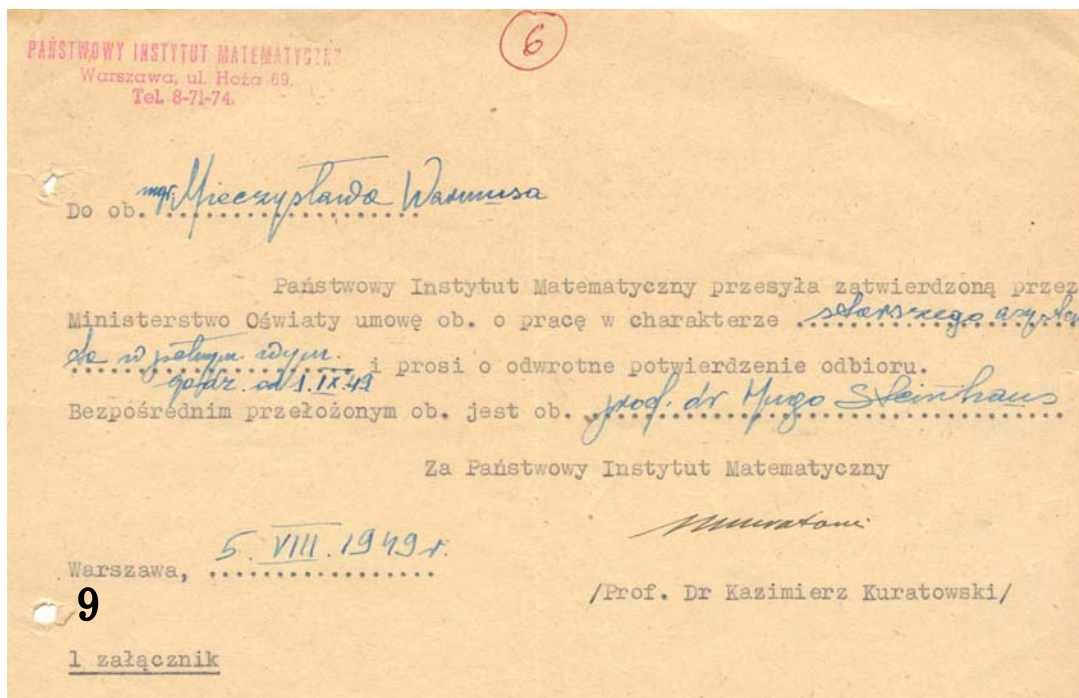 6
PAŃSTWOWY INSTYTUT MATEMATYCZNY
Warszawa, ul. Hoża 69.
Tel. 8-71-74.
Do ob. mgr. Mieczysława Warmusa
Państwowy Instytut Matematyczny przesyła zatwierdzoną przez
Ministerstwo Oświaty umowę ob. o pracę w charakterze starszego asysten
ta w pełnym wym. i prosi o odwrotne potwierdzenie odbioru.
godz. od 1.IX.49
Bezpośrednim przełożonym ob. jest ob. prof. dr Hugo Steinhaus
Za Państwowy Instytut Matematyczny
Warszawa, 5. VIII. 1949 r.
/Prof. Dr Kazimierz Kuratowski/
9
1 załącznik